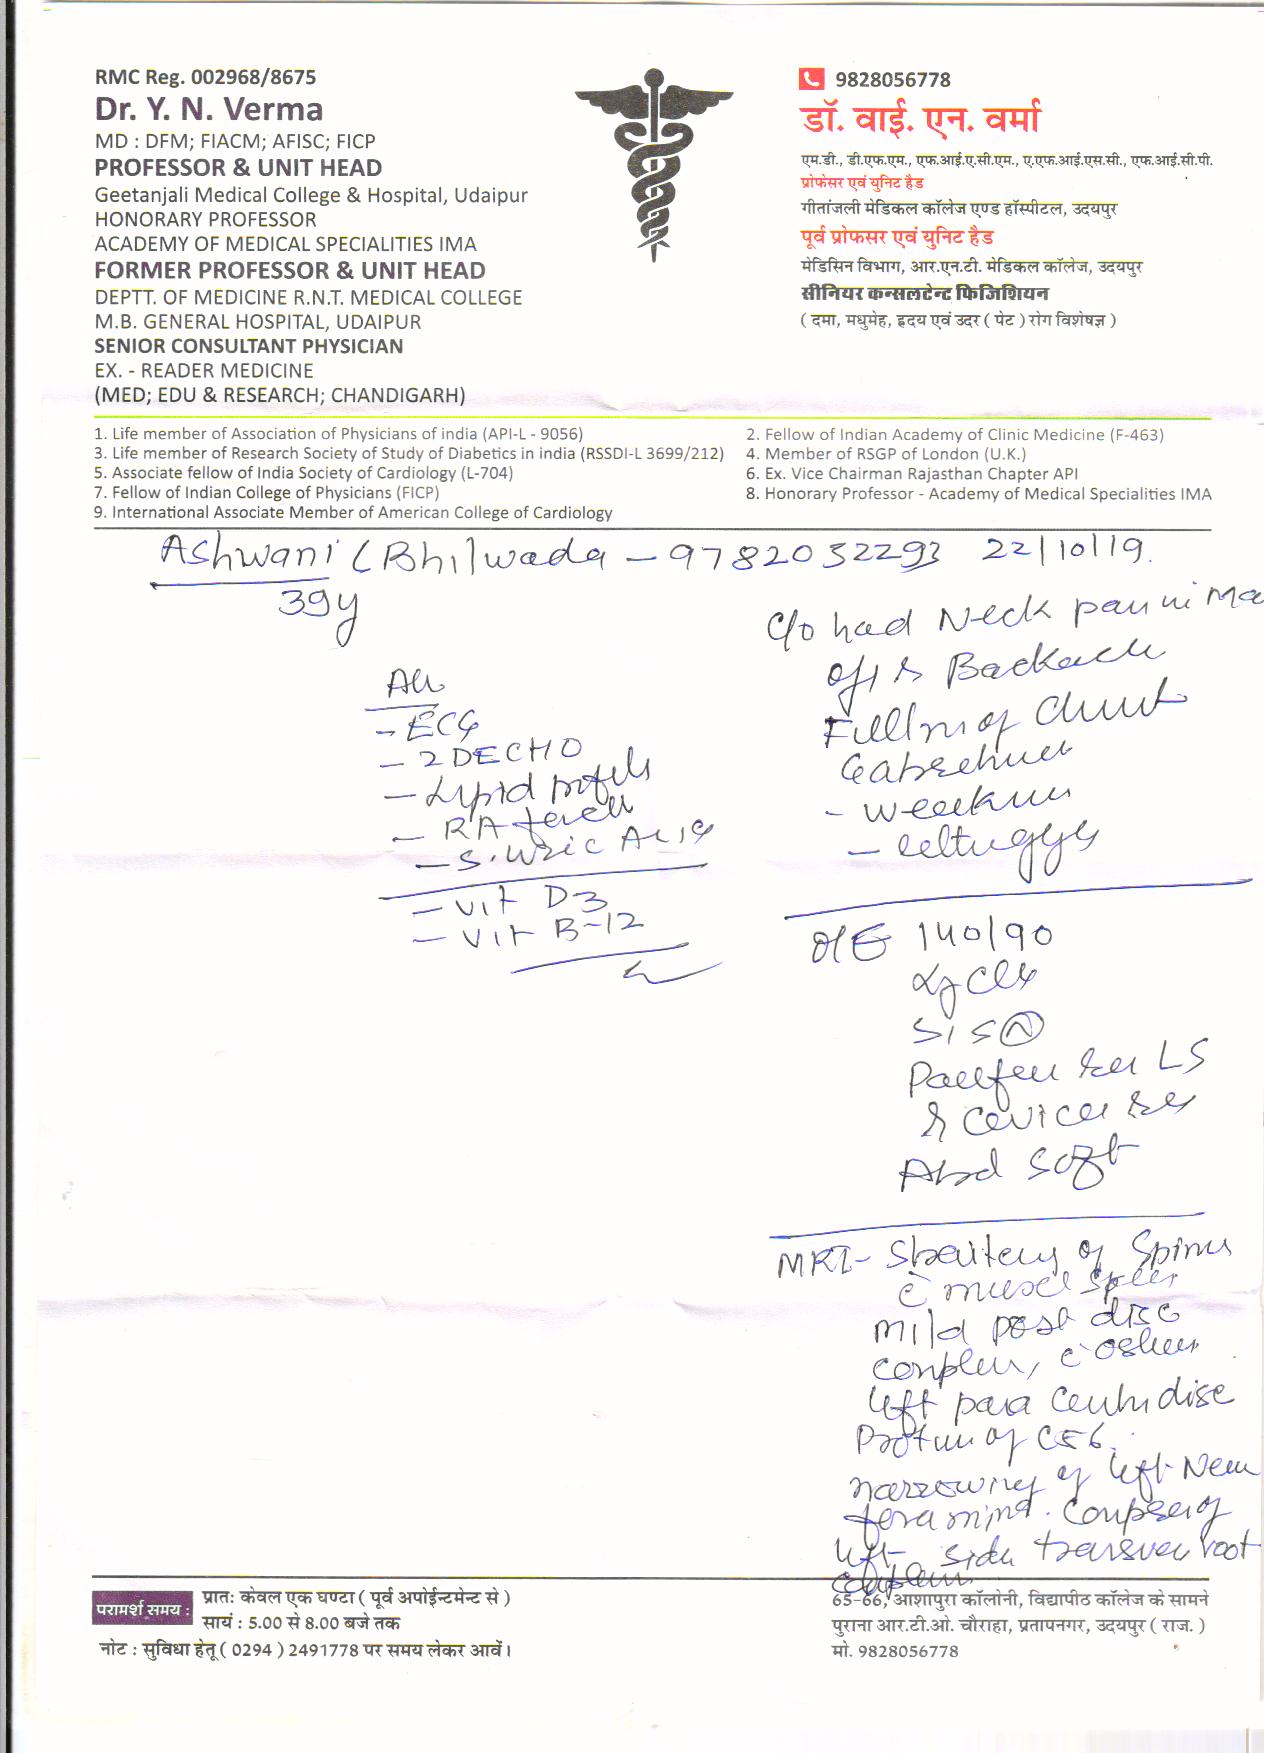 RMC Reg. 002968/8675
Dr. Y. N. Verma
MD : DFM; FIACM; AFISC; FICP
PROFESSOR & UNIT HEAD
Geetanjali Medical College & Hospital, Udaipur
HONORARY PROFESSOR
ACADEMY OF MEDICAL SPECIALITIES IMA
FORMER PROFESSOR & UNIT HEAD
DEPTT. OF MEDICINE R.N.T. MEDICAL COLLEGE
M.B. GENERAL HOSPITAL, UDAIPUR
SENIOR CONSULTANT PHYSICIAN
EX. - READER MEDICINE
(MED; EDU & RESEARCH; CHANDIGARH)
9828056778
डॉ. वाई. एन. वर्मा
एम.डी., डी.एफ.एम., एफ.आई.ए.सी.एम., ए.एफ.आई.एस.सी., एफ.आई.सी.पी.
प्रोफेसर एवं युनिट हैड
गीतांजली मेडिकल कॉलेज एण्ड हॉस्पीटल, उदयपुर
पूर्व प्रोफसर एवं युनिट हैड
मेडिसिन विभाग, आर.एन.टी. मेडिकल कॉलेज, उदयपुर
सीनियर कन्सलटेन्ट फिजिशियन
( दमा, मधुमेह, हृदय एवं उदर ( पेट ) रोग विशेषज्ञ )
1. Life member of Association of Physicians of india (API-L - 9056)
2. Fellow of Indian Academy of Clinic Medicine (F-463)
3. Life member of Research Society of Study of Diabetics in india (RSSDI-L 3699/212)
4. Member of RSGP of London (U.K.)
5. Associate fellow of India Society of Cardiology (L-704)
6. Ex. Vice Chairman Rajasthan Chapter API
7. Fellow of Indian College of Physicians (FICP)
8. Honorary Professor - Academy of Medical Specialities IMA
9. International Associate Member of American College of Cardiology
Ashwani (Bhilwada - 9782032293 22/10/19.
39y
- ECG
- 2D ECHO
- Lipid profile
- RA factor
- S. Uric Acid
- Vit D-3
- Vit B-12
c/o had Neck pain in Ma
Backache
Fullness of
- weakness
O/E 140/90
LS
&
Abd soft
MRI - of Spine
c muscle
mild post disc
complex, c
left para disc
of C56.
narrowing of left
foramina. of
left side root
परामर्श समय :
प्रातः केवल एक घण्टा ( पूर्व अपोईन्टमेन्ट से )
सायं : 5.00 से 8.00 बजे तक
नोट : सुविधा हेतू ( 0294 ) 2491778 पर समय लेकर आवें।
65-66, आशापुरा कॉलोनी, विद्यापीठ कॉलेज के सामने
पुराना आर.टी.ओ. चौराहा, प्रतापनगर, उदयपुर ( राज. )
मो. 9828056778